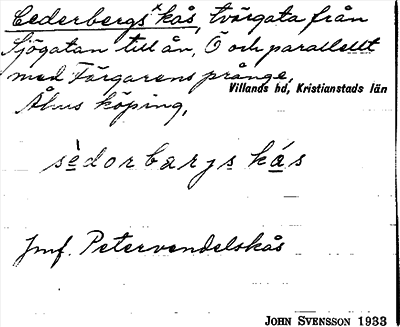 Cederbergs x kås, tvärgata från
Sjögatan till ån, Ö och parallellt
med Färgarens prånge,
Villands hd, Kristianstads län
Åhus köping,
sèdorbarjs kás
Jmf. Petervendelskås
JOHN SVENSSON 1933